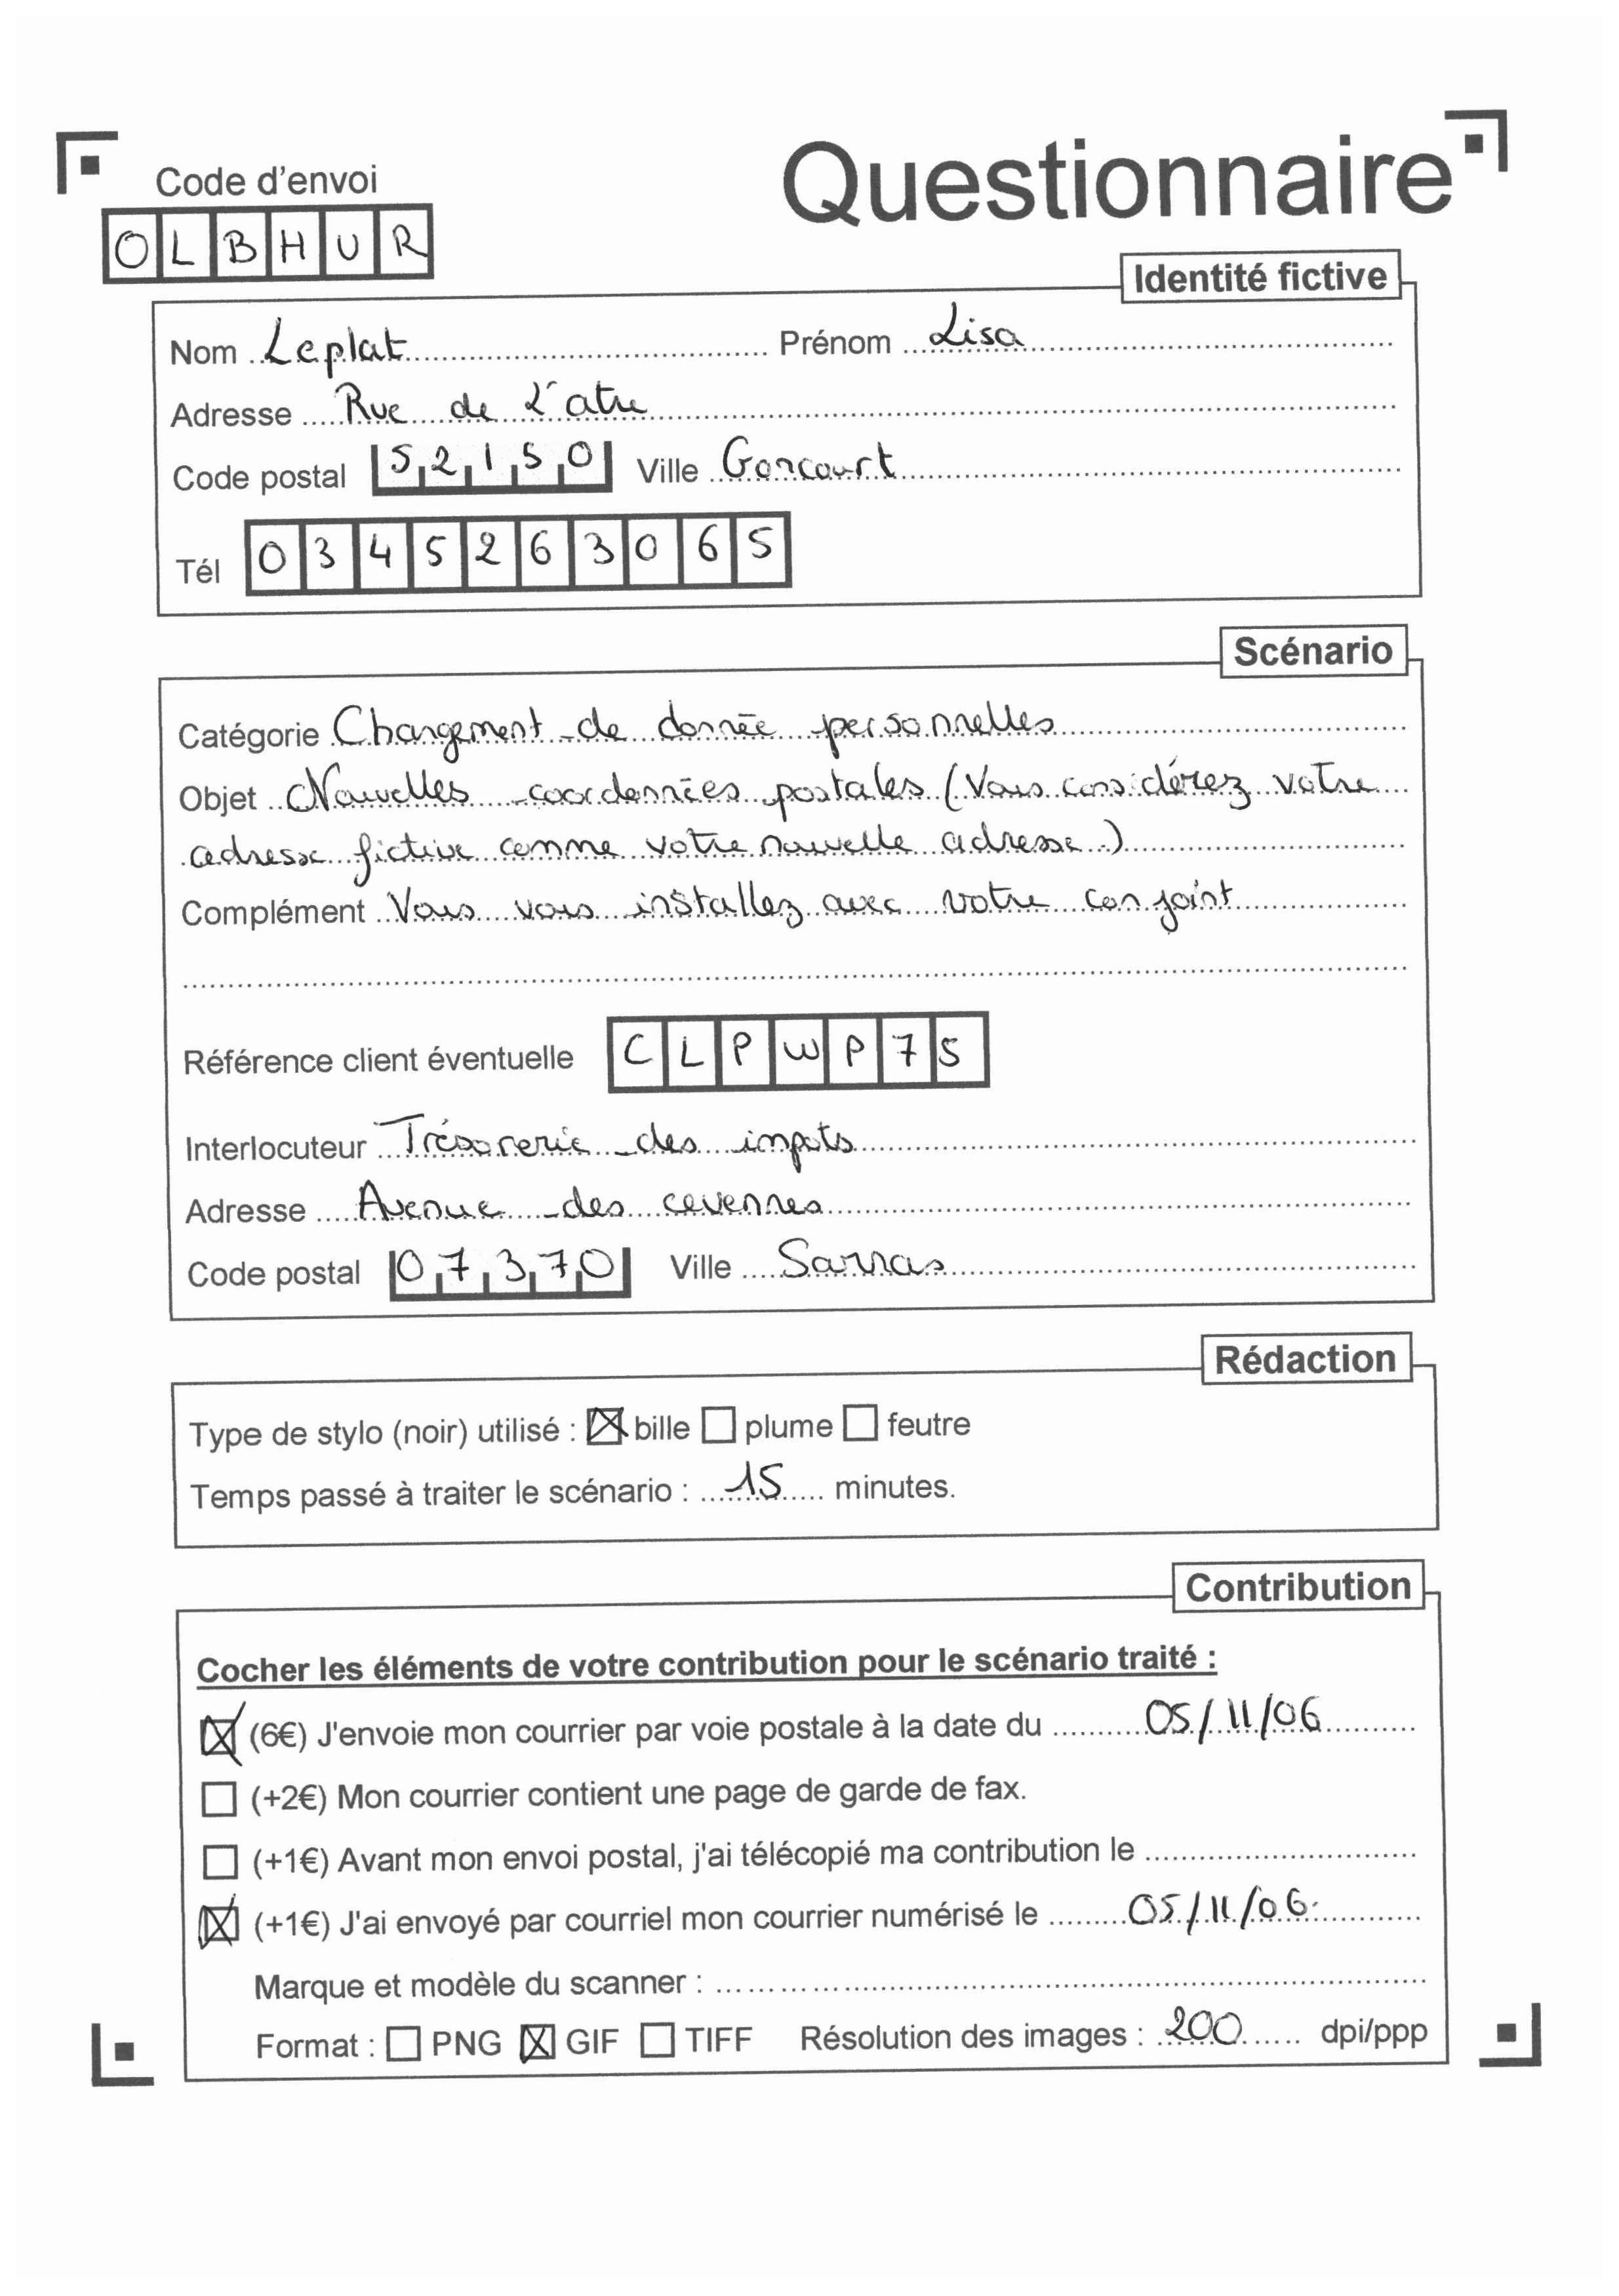 Code d'envoi
Questionnaire
OLBHUR
Identité fictive
Nom Leplat Prénom Lisa
Adresse Rue de L'atre
Code postal 52150 Ville Goncourt
Tél 0345263065
Scénario
Catégorie Changement de donnée personnelles
Objet Nouvelles coordonnées postales (Vous considérez votre
adresse fictive comme votre nouvelle adresse.)
Complément Vous vous installez avec votre conjoint
Référence client éventuelle CLPWP75
Interlocuteur Trésorerie des impots
Adresse Avenue des cevennes
Code postal 07370 Ville Sarras
Rédaction
Type de stylo (noir) utilisé : ☒ bille ☐ plume ☐ feutre
Temps passé à traiter le scénario : 15 minutes.
Contribution
Cocher les éléments de votre contribution pour le scénario traité :
☒ (6€) J'envoie mon courrier par voie postale à la date du 05/11/06
☐ (+2€) Mon courrier contient une page de garde de fax.
☐ (+1€) Avant mon envoi postal, j'ai télécopié ma contribution le
☒ (+1€) J'ai envoyé par courriel mon courrier numérisé le 05/11/06.
Marque et modèle du scanner :
Format : ☐ PNG ☒ GIF ☐ TIFF Résolution des images : 200 dpi/ppp